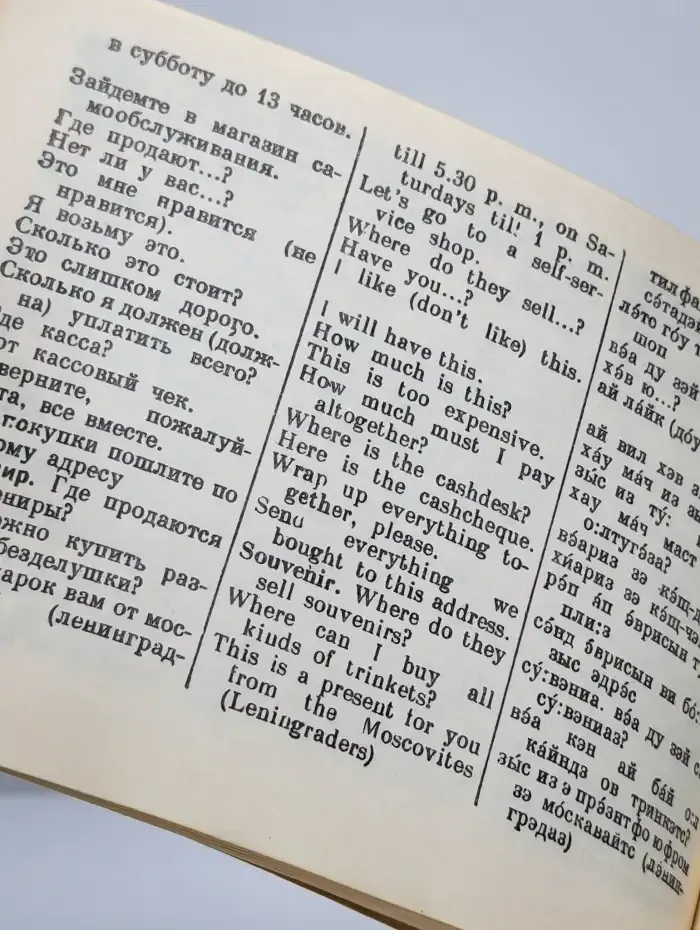 в субботу до 13 часов.
Зайдемте в магазин са-
мообслуживания.
Где продают...?
Нет ли у вас...?
Это мне нравится (не
нравится).
Я возьму это.
Сколько это стоит?
Это слишком дорого.
Сколько я должен (долж-
на) уплатить всего?
де касса?
от кассовый чек.
верните, пожалуй-
та, все вместе.
покупки пошлите по
ому адресу
ир. Где продаются
ниры?
ожно купить раз-
безделушки?
арок вам от мос-
(ленинград-
till 5.30 p. m., on Sa-
turdays till 1 p. m.
Let's go to a self-ser-
vice shop.
Where do they sell...?
Have you...?
I like (don't like) this.
I will have this.
How much is this?
This is too expensive.
How much must I pay
altogether?
Where is the cashdesk?
Here is the cashcheque.
Wrap up everything to-
gether, please.
Send everything we
bought to this address.
Souvenir. Where do they
sell souvenirs?
Where can I buy all
kinds of trinkets?
This is a present for you
from the Moscovites
(Leningraders)
тил фа
сэ́тэдай
лэтс го́у т
шоп
вэ́а ду зэй
хэ́в ю...?
ай ла́йк (до́у
ай вил хэв з
ха́у мач из зы
зы́с из ту́:
хау мач маст
о:лтуге́за?
вэ́ариз зэ кэ́ш-д
хи́ариз зэ кэ́ш-че
рэ́п а́п э́врисын т
пли:з
сэ́нд э́врисын ви бо́:
зыс эдрэ́с
су́:вэниа. вэ́а ду зэй с
су́:вэниаз?
вэ́а кэн ай ба́й о:л
ка́йндз ов тринкэтс?
зы́с из э прэ́знт фо ю фром
зэ мо́скавайтс (лэ́нин-
грэдаз)